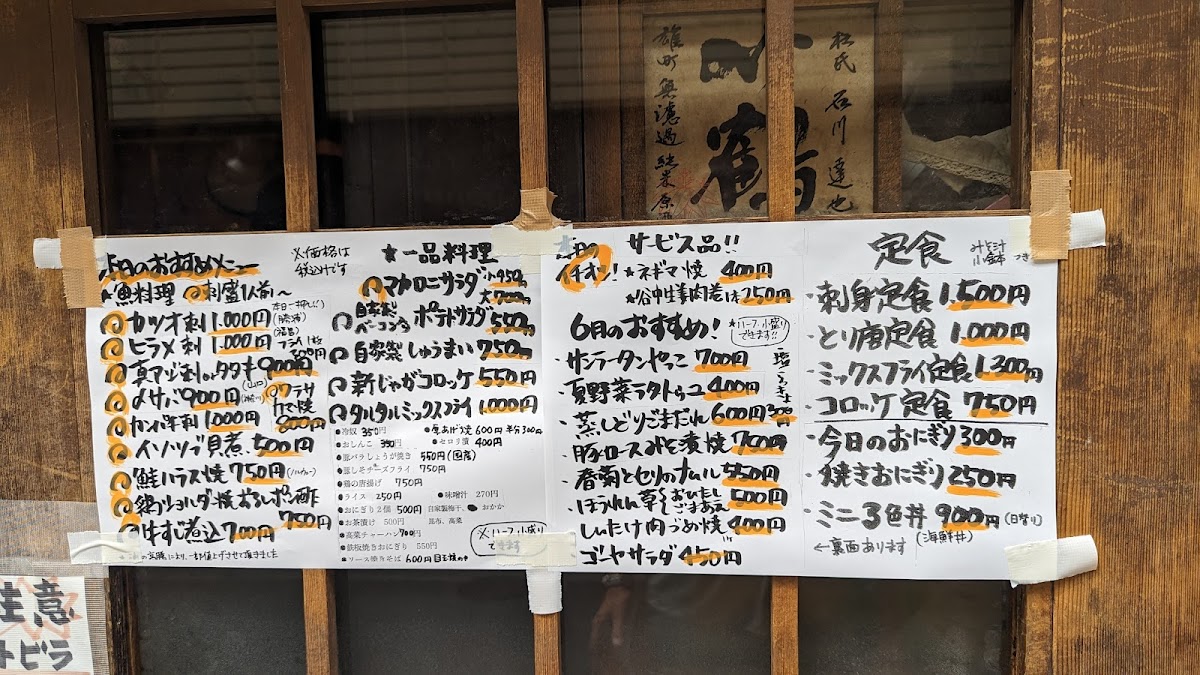 杜氏 石川 達也
鶴
雄町 無濾過 純米原酒
本日のおすすめメニュー
※価格は
税込みです
★魚料理 刺盛1人前～
カツオ刺 1,000円
本日一押し!!
(勝浦)
ヒラメ刺 1,000円
真アジ刺orタタキ 900円
〆サバ 900円
カンパチ刺 1,000円
ブラサ
カマ焼
800円
イソツブ貝煮 500円
鮭ハラス焼 750円
鶏ショルダー焼おろしポン酢
750円
牛すじ煮込 700円
★一品料理
マカロニサラダ 小450円
大700円
自家製
ベーコン入り ポテトサラダ 550円
自家製しゅうまい 750円
新じゃがコロッケ 550円
タルタルミックスフライ 1,000円
●冷奴 350円
●厚あげ焼 600円 半分300円
●おしんこ 350円
●セロリ漬 400円
●豚バラしょうが焼き 550円(国産)
●豚しそチーズフライ 750円
●鶏の唐揚げ 750円
●ライス 250円
●味噌汁 270円
●おにぎり2個 500円 自家製梅干、おかか
昆布、高菜
●お茶漬け 500円
●高菜チャーハン 700円
●鉄板焼きおにぎり 550円
●ソース焼きそば 600円 目玉焼のせ
※ハーフ、小盛り
できます
本日の
イチオシ!
サービス品!!
★ネギマ焼 400円
★谷中生姜肉巻き1本 250円
6月のおすすめ!
★ハーフ、小盛り
できます!!
・サンラータンやっこ 700円
・夏野菜ラタトゥユ 400円
・蒸しどりごまだれ 600円 300円
・豚ロースみそ漬焼 700円
・春菊とセリのナムル 550円
・ほうれん草 おひたし
ごまあえ 500円
・しいたけ肉づめ焼 400円
・ゴーヤサラダ 450円
定食
みそ汁
小鉢 つき
・刺身定食 1,500円
・とり唐定食 1,000円
・ミックスフライ定食 1,300円
・コロッケ定食 750円
・今日のおにぎり 300円
・焼きおにぎり 250円
・ミニ3色丼 900円 (日替り)
(海鮮丼)
←裏面あります
注意
トビラ